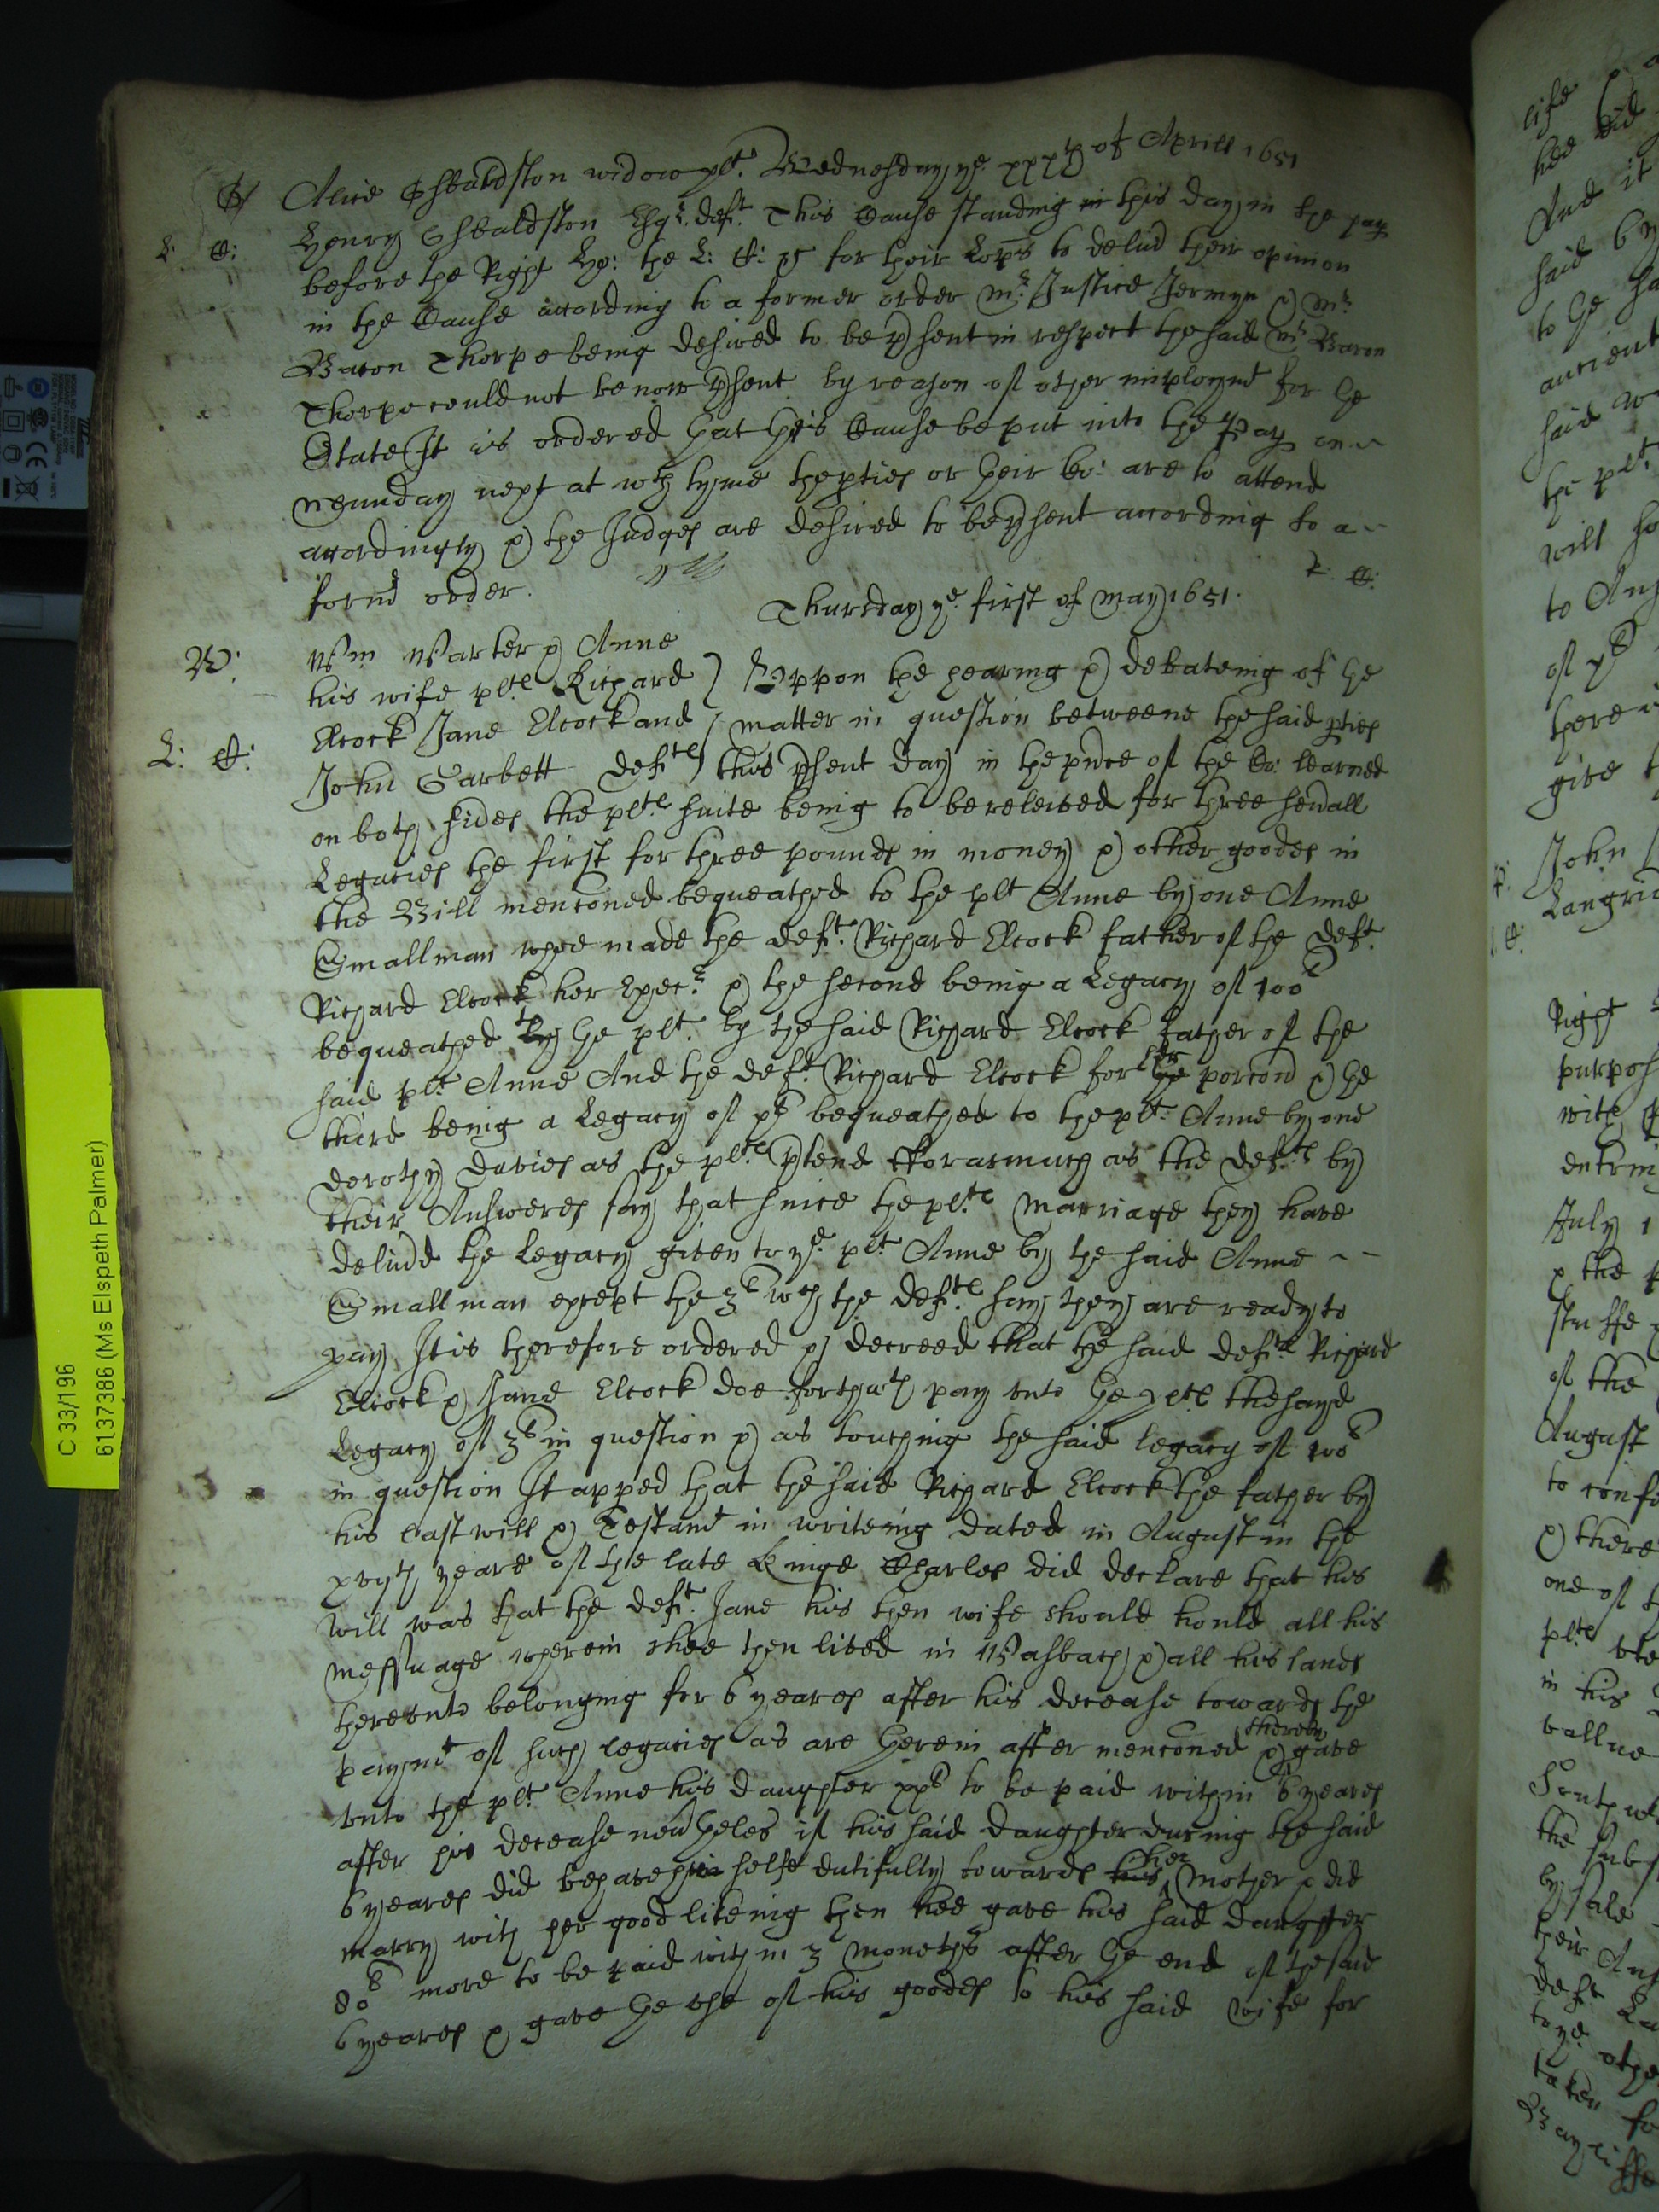 Alice Osbaldston widow plt. Wednesday ye. xxxth of Aprill 1651
Henry Osbaldston Esqr. deft. This Cause standing in this day in the pap
L: C: before the Right Ho: the L: C: rs for their Lopps to deliv̄ their opinion
in the Cause according to a former order Mr. Justice Jermyn & Mr.
Baron Thorpe being desired to be p̱sent in respect the said Mr Baron
Thorpe could not be now p̱sent by reason of other imploymt for the
State It is ordered that this Cause be put into the Pap on
Munday next at wch tyme the pties or their Co: are to attend
accordingly & the Judges are desired to be p̱sent according to a
form̄ order.
L: C:
Thursday ye. first of May 1651.
W: Wm Warter & Anne
his wife plts Richard } Uppon the hearing & debateing of the
L: C: Elcock Jane Elcock and matter in question betweene the said pties
John Garbett defts this p̱sent day in the p̱nce of the Co: learned
on both sides the plts suite being to be releived for three sev̄all
Legacies the first for three pounds in money & other goodes in
the Bill menc̄oned bequeathed to the plt Anne by one Anne
Smallman whoe made the deft. Richard Elcock father of the deft.
Richard Elcock her Exec.r & the second being a Legacy of 100l
bequeathed to the plt. by the said Richard Elcock father of the
said plt. Anne And the deft. Richard Elcock for her porc̄on & the
third being a Legacy of xl bequeathed to the plt. Anne by one
Dorothy Davies as the plts p̱tend fforasmuch as the defts by
their Answeres say that since the plts marriage they have
deliv̄d the Legacy given to ye. plt Anne by the said Anne
Smallman except the 3l wch the defts say they are ready to
pay It is therefore ordered & decreed that the said defts Richard
Elcock & Jane Elcock doe forthwth pay unto the plts the sayd
Legacy of 3l in question & as touching the said legacy of 100l
in question It apped that the said Richard Elcock the father by
his last will & Testamt in writeing dated in August in the
xvjth yeare of the late Kinge Charles did declare that his
will was that the deft. Jane his then wife should hould all his
messuage wherein shee then lived in Washbach & all his lands
thereunto belonging for 6 yeares after his decease towards the
paymt of such legacies as are therein after menc̄oned & thereby gave
unto the plt. Anne his daughter xxl to be paid within 6 yeares
after his decease nev̄theles if his said daughter during the said
6 yeares did behave her selfe dutifully towards his her mother & did
marry with her good likeing then hee gave his said daughter
80l more to be paid within 3 moneths after the end of the said
6 yeares & gave the use of his goodes to his said wife for
C 33/196
6137386 (Ms Elspeth Palmer)